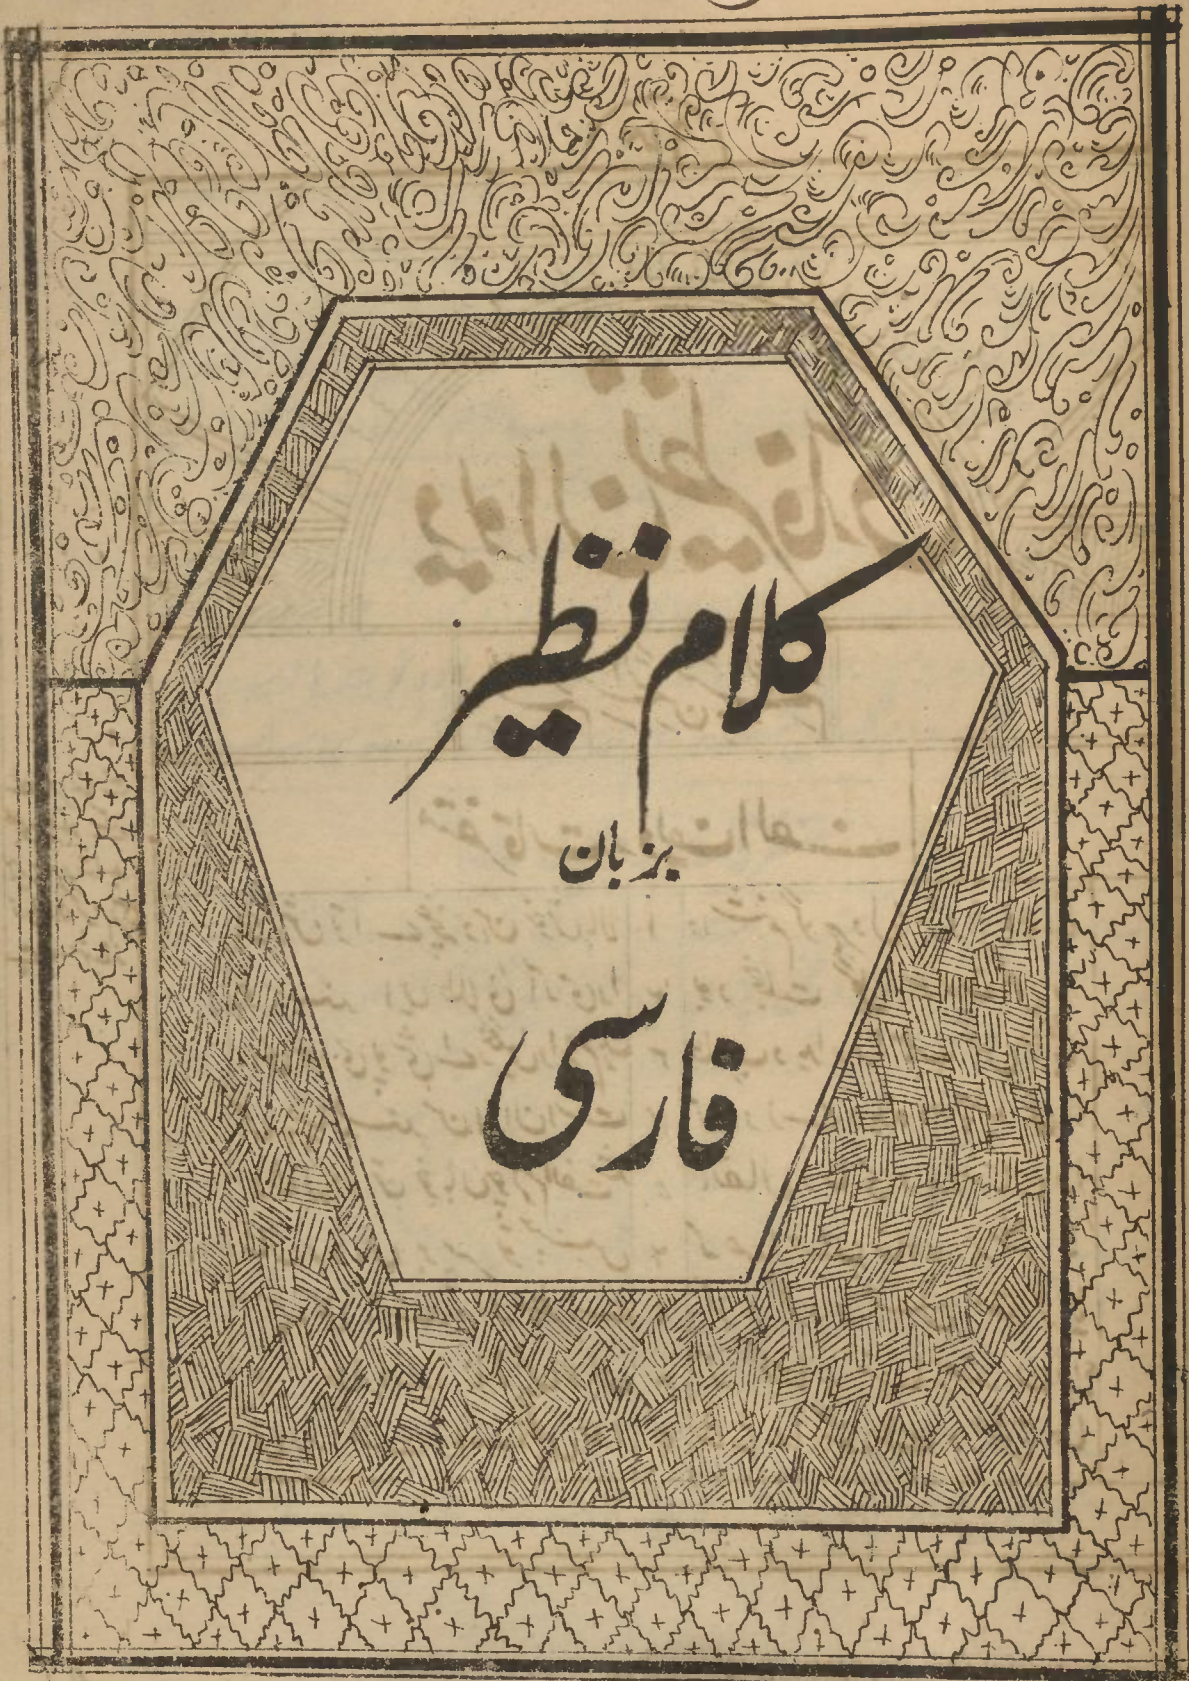 کلام نظیر
بزبان
فارسی